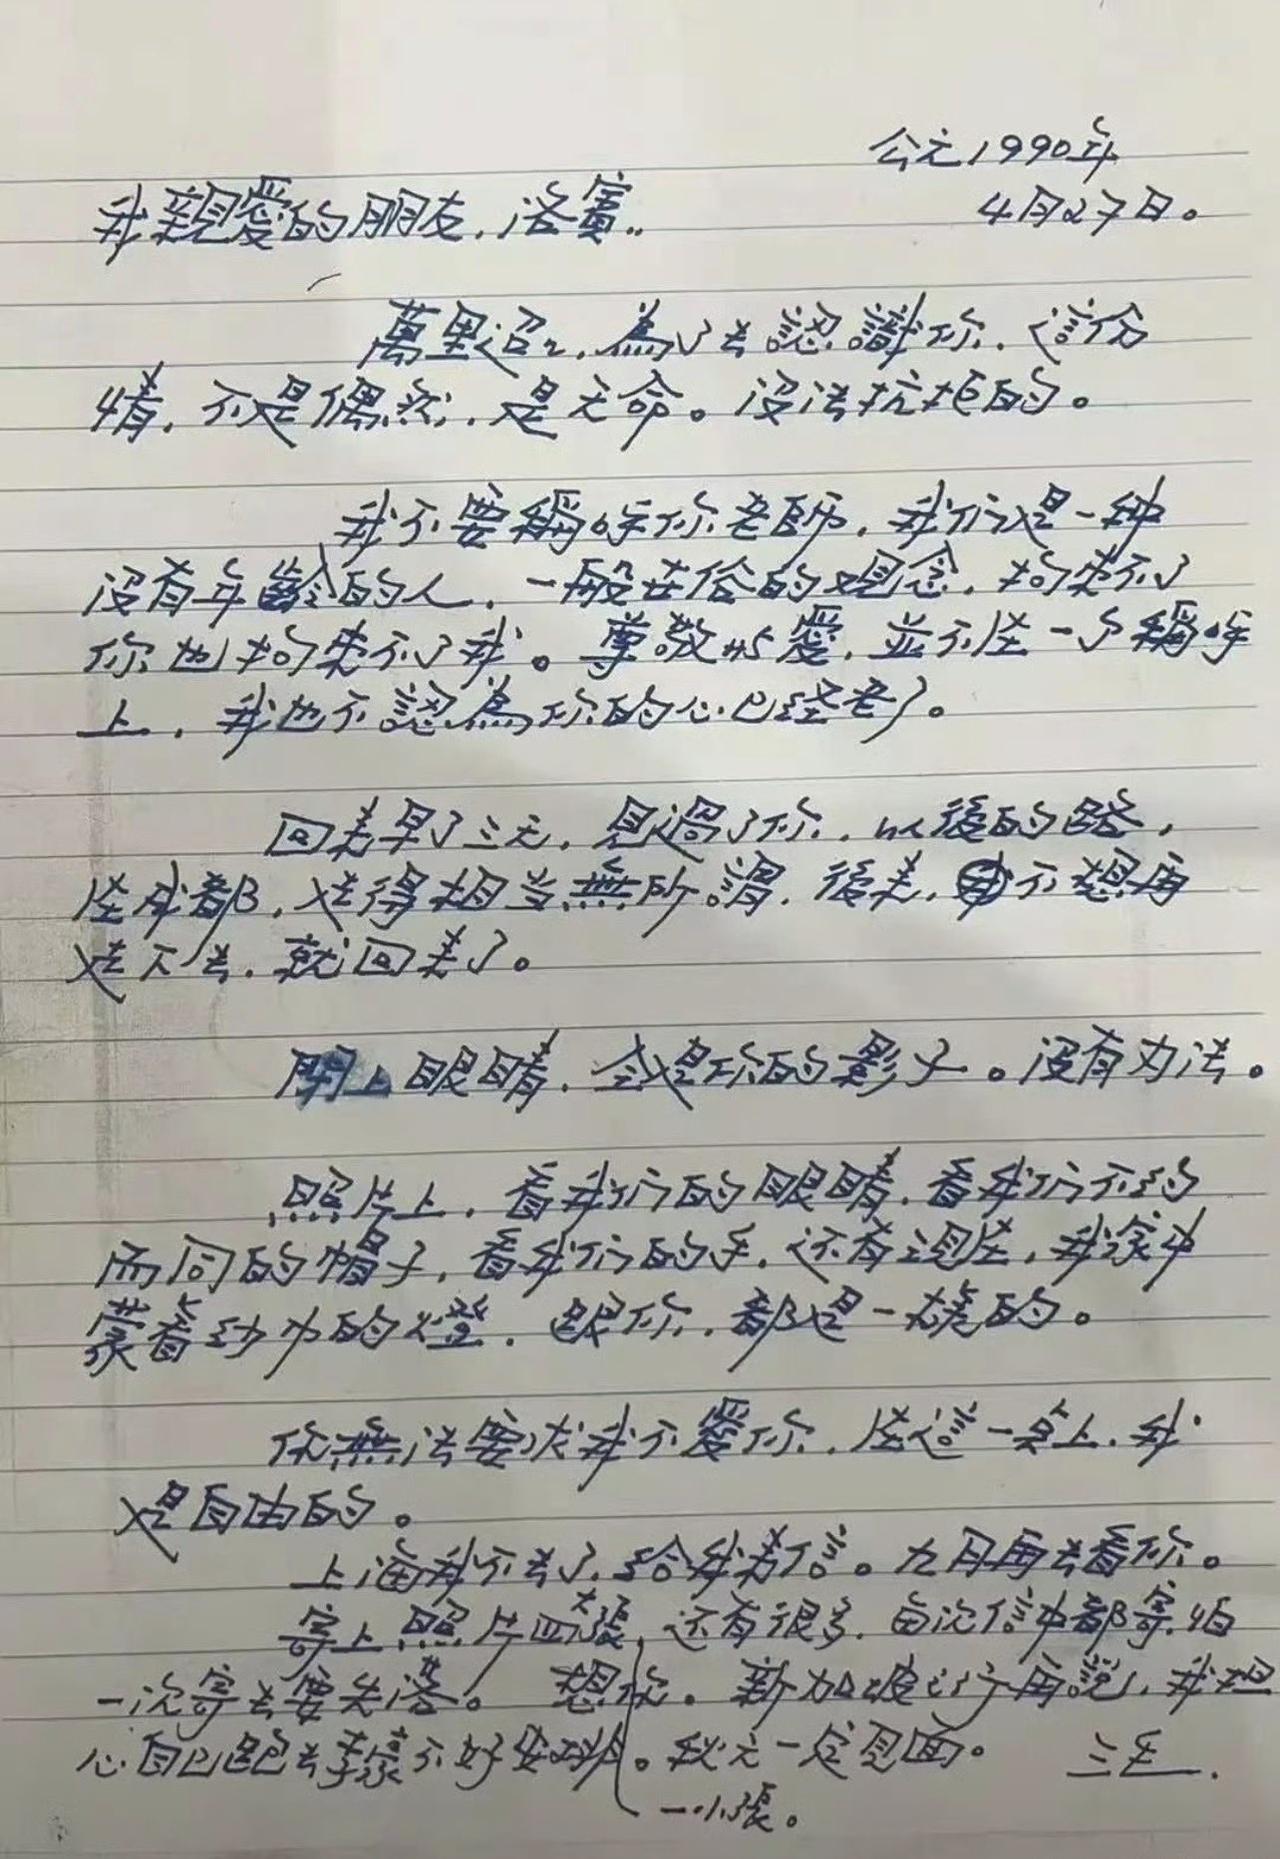 公元1990年
4月27日。
我親愛的朋友，洛賓：
萬里迢迢，為了去認識你，這份
情，不是偶然，是天命。沒法抗拒的。
我不要稱呼你老師，我们是一种
沒有年齡的人，一般世俗的观念，拘束不了
你也拘束不了我。尊敬與爱，並不在一个稱呼
上，我也不認為你的心已经老了。
回来早了三天，見過了你，以後的路，
在成都，走得相当無所謂，後来，不想再
走下去，就回来了。
閉上眼睛，全是你的影子。沒有办法。
照片上，看我们的眼睛，看我们不约
而同的帽子，看我们的手，还有現在，我家中
蒙着纱巾的燈，跟你，都是一樣的。
你無法要求我不愛你，在這一点上，我
是自由的。
上海我不去了，给我来信。九月再去看你。
寄上照片四大張，一小張。还有很多，每次信中都寄，怕
一次寄去要失落。想你。新加坡之行再說，我担
心自己跑去李豪不好安排。秋天一定見面。
三毛．